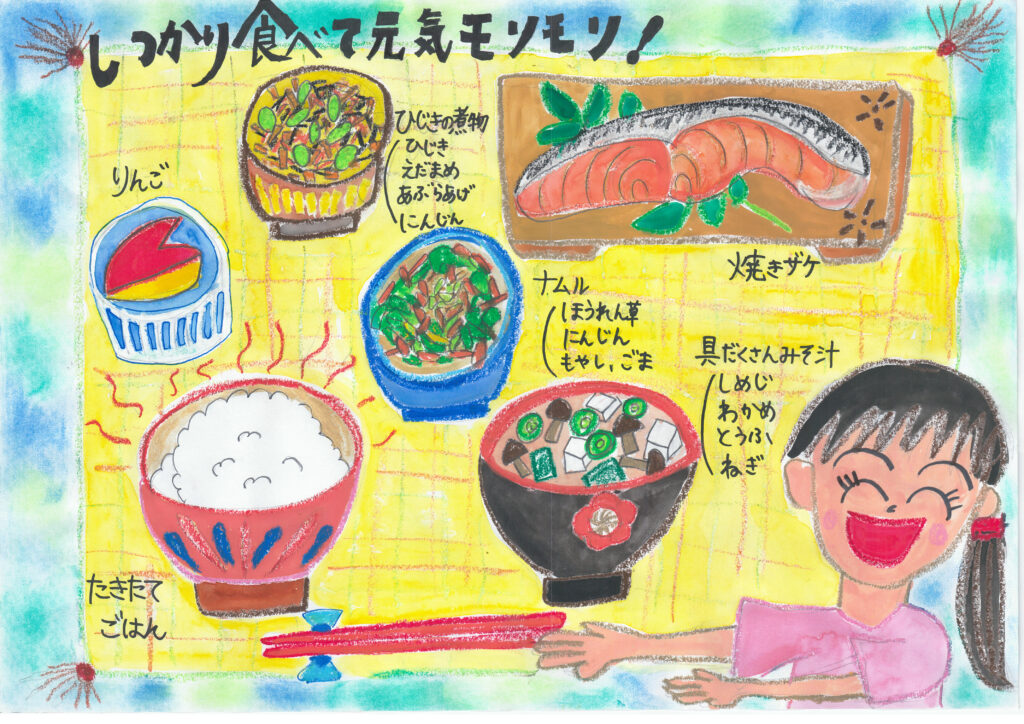 しっかり食べて元気モリモリ!
ひじきの煮物
ひじき
えだまめ
あぶらあげ
にんじん
りんご
焼きザケ
ナムル
ほうれん草
にんじん
もやし,ごま
具だくさんみそ汁
しめじ
わかめ
とうふ
ねぎ
たきたて
ごはん